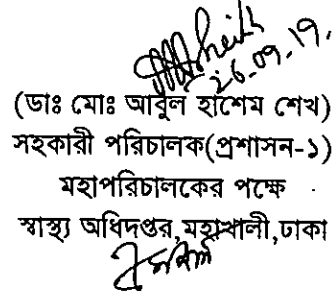 Sheikh
26.09.19.
(ডাঃ মোঃ আবুল হাশেম শেখ)
সহকারী পরিচালক(প্রশাসন-১)
মহাপরিচালকের পক্ষে
স্বাস্থ্য অধিদপ্তর,মহাখালী,ঢাকা